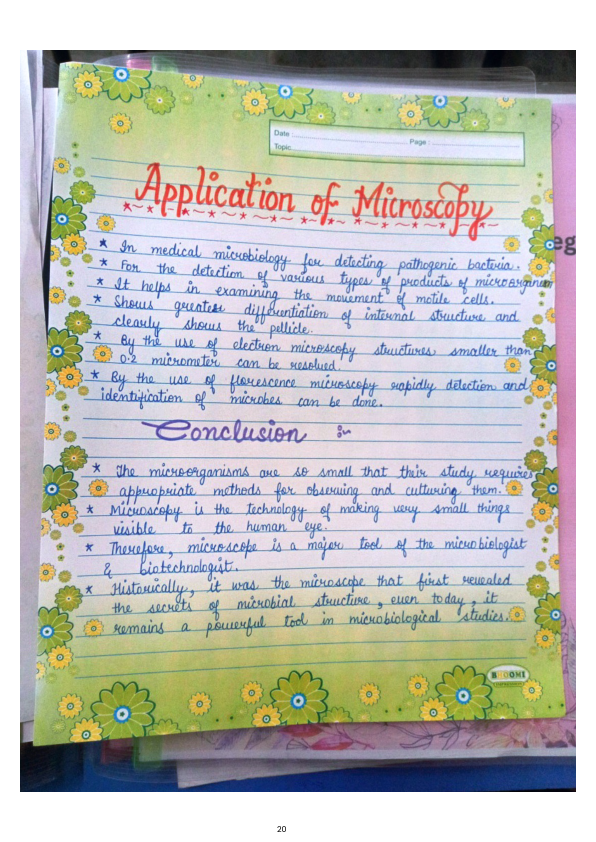 Date :
Page :
Topic
Application of Microscopy
* In medical microbiology for detecting pathogenic bacteria.
* For the detection of various types of products of microorganism
* It helps in examining the movement of motile cells.
* Shows greates differentiation of internal structure and
clearly shows the pellicle.
* By the use of electron microscopy structures smaller than
0.2 micrometer can be resolved.
* By the use of florescence microscopy rapidly detection and
identification of microbes can be done.
Conclusion :~
* The microorganisms are so small that their study requires
appropriate methods for observing and culturing them.
* Microscopy is the technology of making very small things
visible to the human eye.
* Therefore, microscope is a major tool of the microbiologist
& biotechnologist.
* Historically, it was the microscope that first revealed
the secrets of microbial structure, even today, it
remains a powerful tool in microbiological studies.
BHOOMI
eg
20